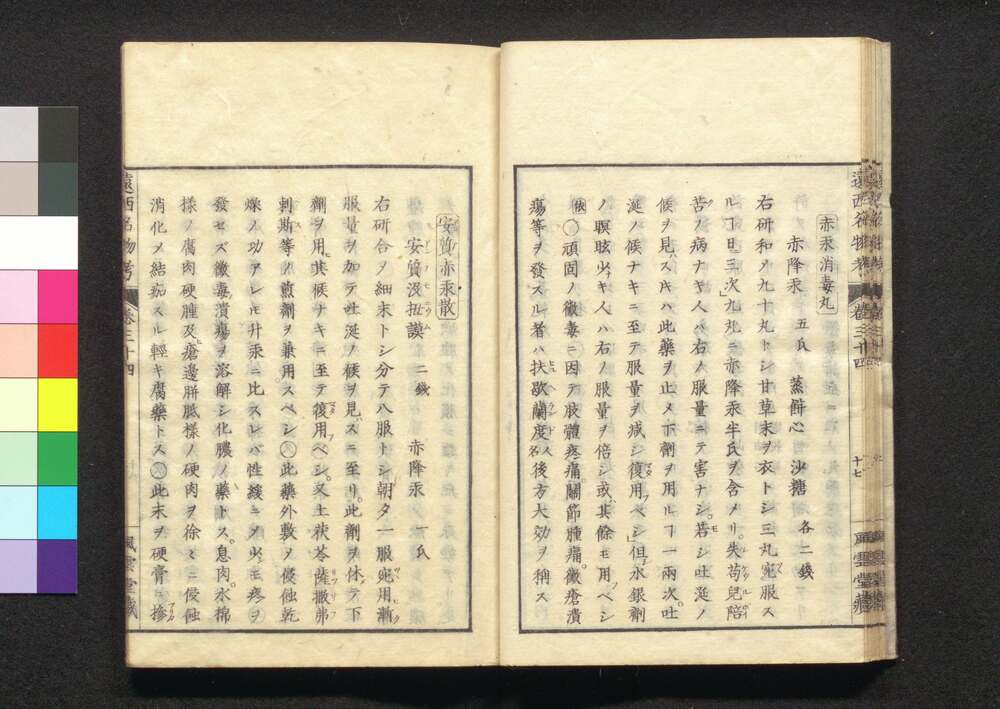 赤汞消毒丸
赤降汞 五氏 蒸餅心 沙糖 各二錢
右研和乄九十丸トシ甘草末ヲ衣トシ三丸宛服ス
ルヿ日三次九丸ニ赤降汞半氏ヲ含メリ失苟兒陪
苦ノ病ナキ人ハ右ノ服量ニテ害ナシ若シ吐涎ノ
候ヲ見バ此藥ヲ止メ下劑ヲ用ルヿ一兩次吐
涎ノ候ナキニ至テ服量ヲ減シ復用ベシ但水銀劑
ノ瞑眩少キ人ハ右ノ服量ヲ倍シ或其餘モ用ベシ
○頑固ノ黴毒ニ因テ肢體疼痛關節腫痛黴瘡潰
瘍等ヲ發スル者ハ扶歇蘭度人名後方大効ヲ稱ス
遠西名物考 卷三十四 十七 風雲堂藏
安質赤汞散
安質没扭謨 二錢 赤降汞 一氏
右研合乄細末トシ分テ八服トシ朝夕一服宛用漸
服量ヲ加テ吐涎ノ候ヲ見ニ至リ此劑ヲ休テ下
劑ヲ用其候ナキニ至テ復用ベシ又土茯苓薩撒弗
剌斯等ノ煎劑ヲ兼用スベシ○此藥外敷乄侵蝕乾
燥ノ功アレ𪜈升汞ニ比スレバ性緩ニ乄少モ疼ヲ
發セズ黴毒潰瘍ヲ溶解シ化膿ノ藥トス息肉水棉
樣ノ腐肉硬腫及瘡邊胼胝樣ノ硬肉ヲ徐々ニ侵蝕
消化乄結痂スル輕キ腐藥トス○此末ヲ硬膏ニ摻
遠西名物考 卷三十四 風雲堂藏